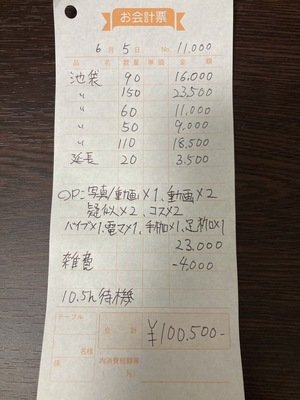 お会計票
6月5日 No. 11,000
品名 数量 単価 金額
池袋 90 16,000
〃 150 23,500
〃 60 11,000
〃 50 9,000
〃 110 18,500
延長 20 3,500
OP:写真/動画×1、動画×2
疑似×2、コス×2
バイブ×1、電マ×1、手枷×1、足枷×1
23,000
雑費 -4,000
10.5h待機
テーブル
名様
様
合計 ¥100,500-
内消費税額等